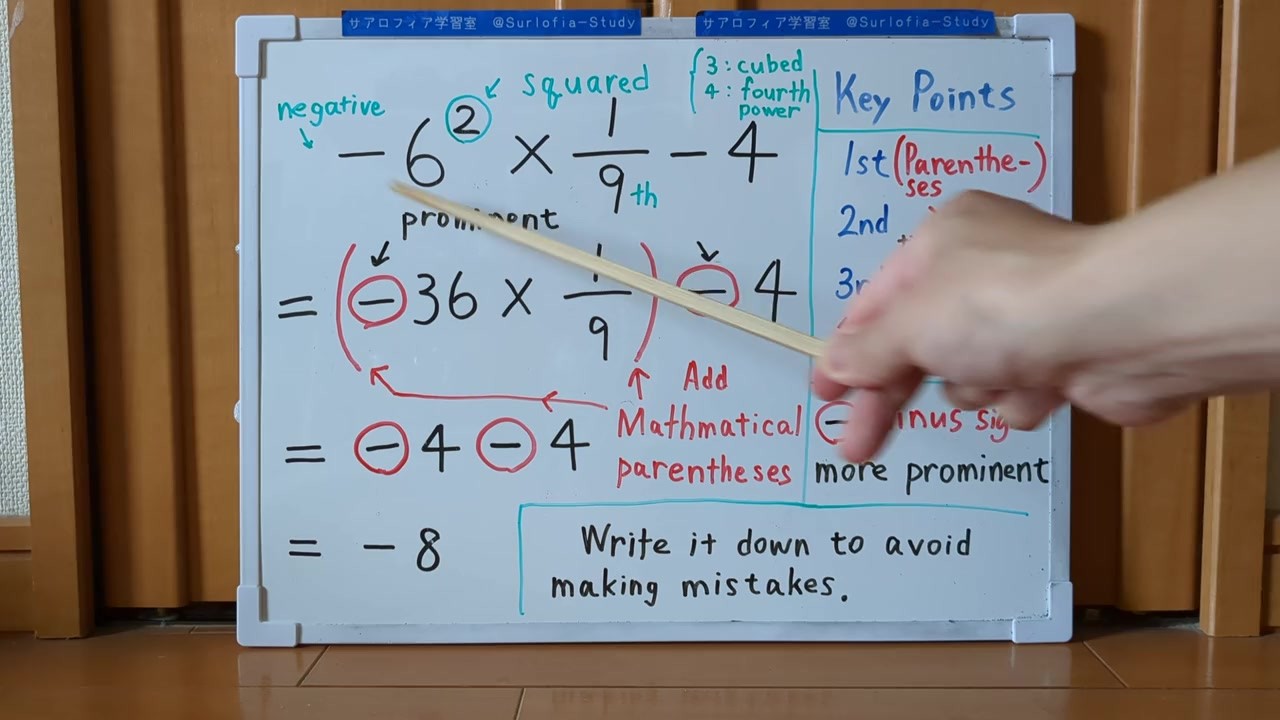 サアロフィア学習室 @Surlofia-Study サアロフィア学習室 @Surlofia-Study
negative
squared
3 : cubed
4 : fourth
power
− 6² × 1/9 th − 4
prominent
= ( − 36 × 1/9 ) − 4
Add
Mathmatical
parentheses
= − 4 − 4
= − 8
Key Points
1st (Parenthe-)
ses
2nd
more prominent
Write it down to avoid
making mistakes.